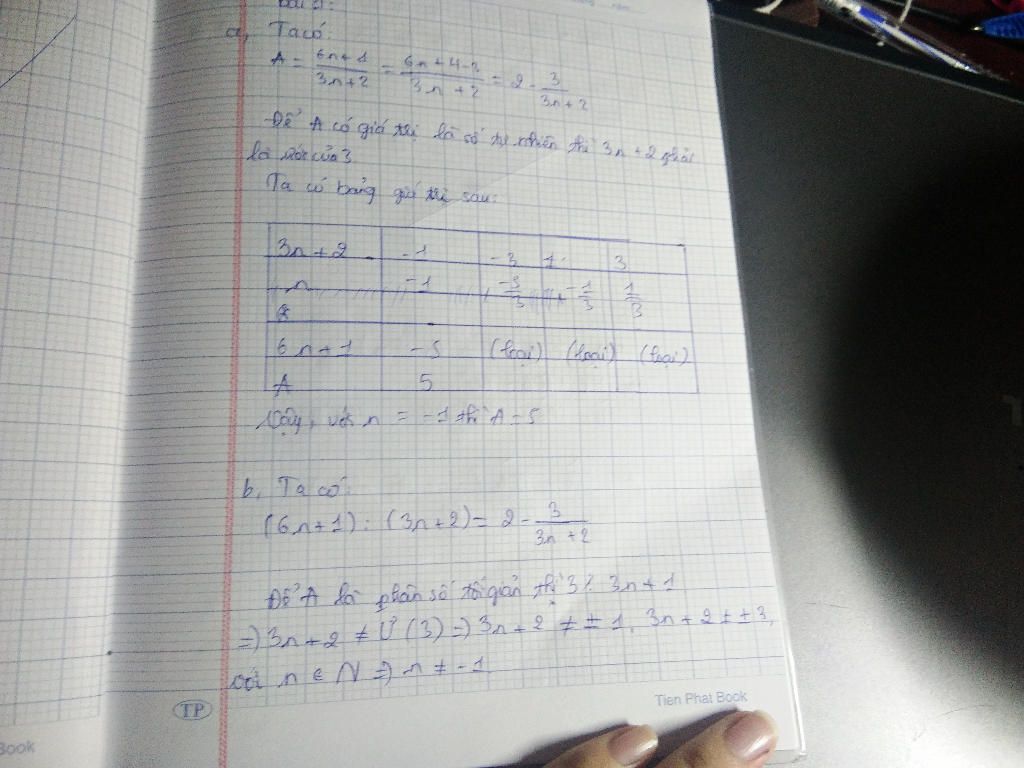 a, Ta có:
A = \frac{6n+1}{3n+2} = \frac{6n+4-3}{3n+2} = 2 - \frac{3}{3n+2}
Để A có giá trị là số tự nhiên thì 3n+2 phải
là ước của 3
Ta có bảng giá trị sau:
3n+2 -1 -3 1 3
n -1 \frac{-5}{3} \frac{-1}{3} \frac{1}{3}
6n+1 -5 (loại) (loại) (loại)
A 5
Vậy, với n = -1 thì A = 5
b, Ta có:
(6n+1) : (3n+2) = 2 - \frac{3}{3n+2}
Để A là phân số tối giản thì 3 ⋮ 3n+1
=> 3n+2 ≠ Ư(3) => 3n+2 ≠ ±1, 3n+2 ± ±3,
với n ∈ N => n ≠ -1
TP
Tien Phat Book
Book